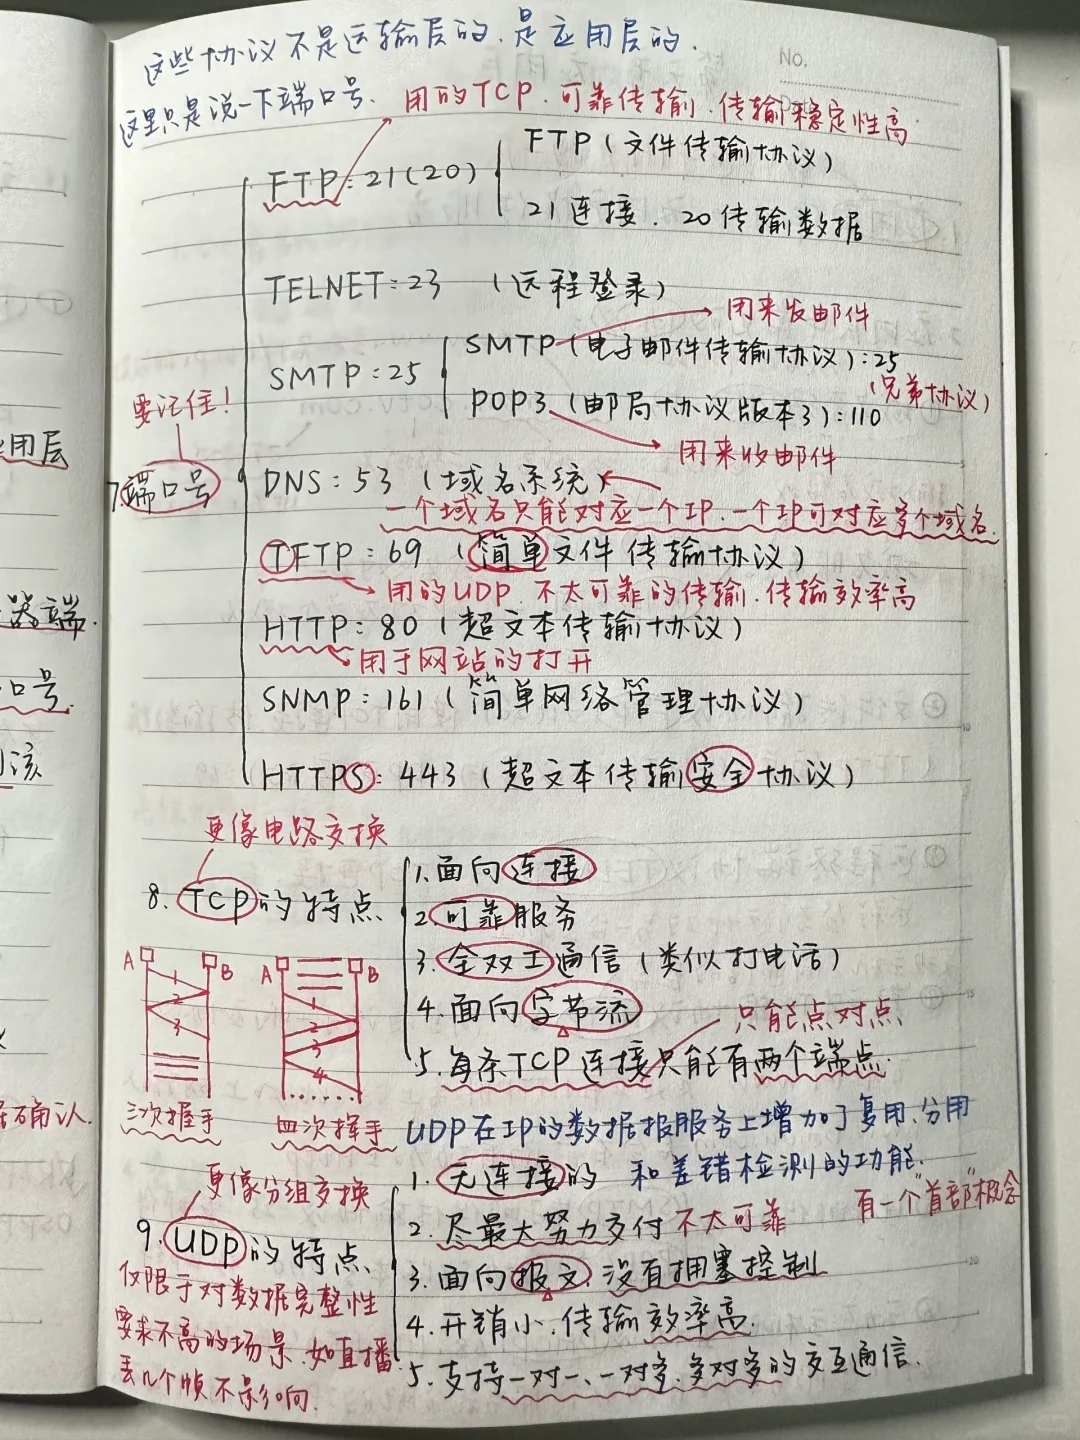 这些协议不是运输层的.是应用层的.
No.
这里只是说一下端口号.
用的TCP.可靠传输.传输稳定性高.
FTP:21(20)
FTP(文件传输协议)
21连接.20传输数据
TELNET:23 (远程登录)
用来发邮件
SMTP:25
SMTP(电子邮件传输协议):25
(兄弟协议)
POP3(邮局协议版本3):110
用来收邮件
要记住!
7.端口号
DNS:53 (域名系统)
一个域名只能对应一个IP.一个IP可对应多个域名.
TFTP:69 (简单文件传输协议)
用的UDP.不太可靠的传输.传输效率高
HTTP:80(超文本传输协议)
用于网站的打开
SNMP:161(简单网络管理协议)
HTTPS:443(超文本传输安全协议)
更像电路交换
8.TCP的特点
1.面向连接
2.可靠服务
3.全双工通信(类似打电话)
4.面向字节流
只能点对点
5.每条TCP连接只能有两个端点.
A B
1
2
3
三次握手
A B
1
2
3
4
......
四次挥手
UDP在IP的数据报服务上增加了复用.分用
和差错检测的功能.
更像分组交换
有一个"首部"概念
9.UDP的特点
仅限于对数据完整性
要求不高的场景.如直播.
丢几个帧不影响.
1.无连接的
2.尽最大努力交付 不太可靠
3.面向报文.没有拥塞控制
4.开销小.传输效率高.
5.支持一对一、一对多.多对多的交互通信.
用层
器端.
口号.
该
确认.